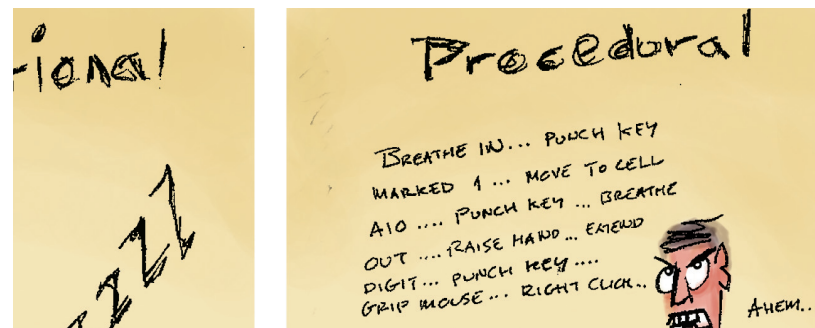 rional
zzzz
Procedural
BREATHE IN... PUNCH KEY
MARKED 1 ... MOVE TO CELL
A10 .... PUNCH KEY ... BREATHE
OUT .... RAISE HAND ... EXTEND
DIGIT... PUNCH KEY ....
GRIP MOUSE... RIGHT CLICK...
AHEM..